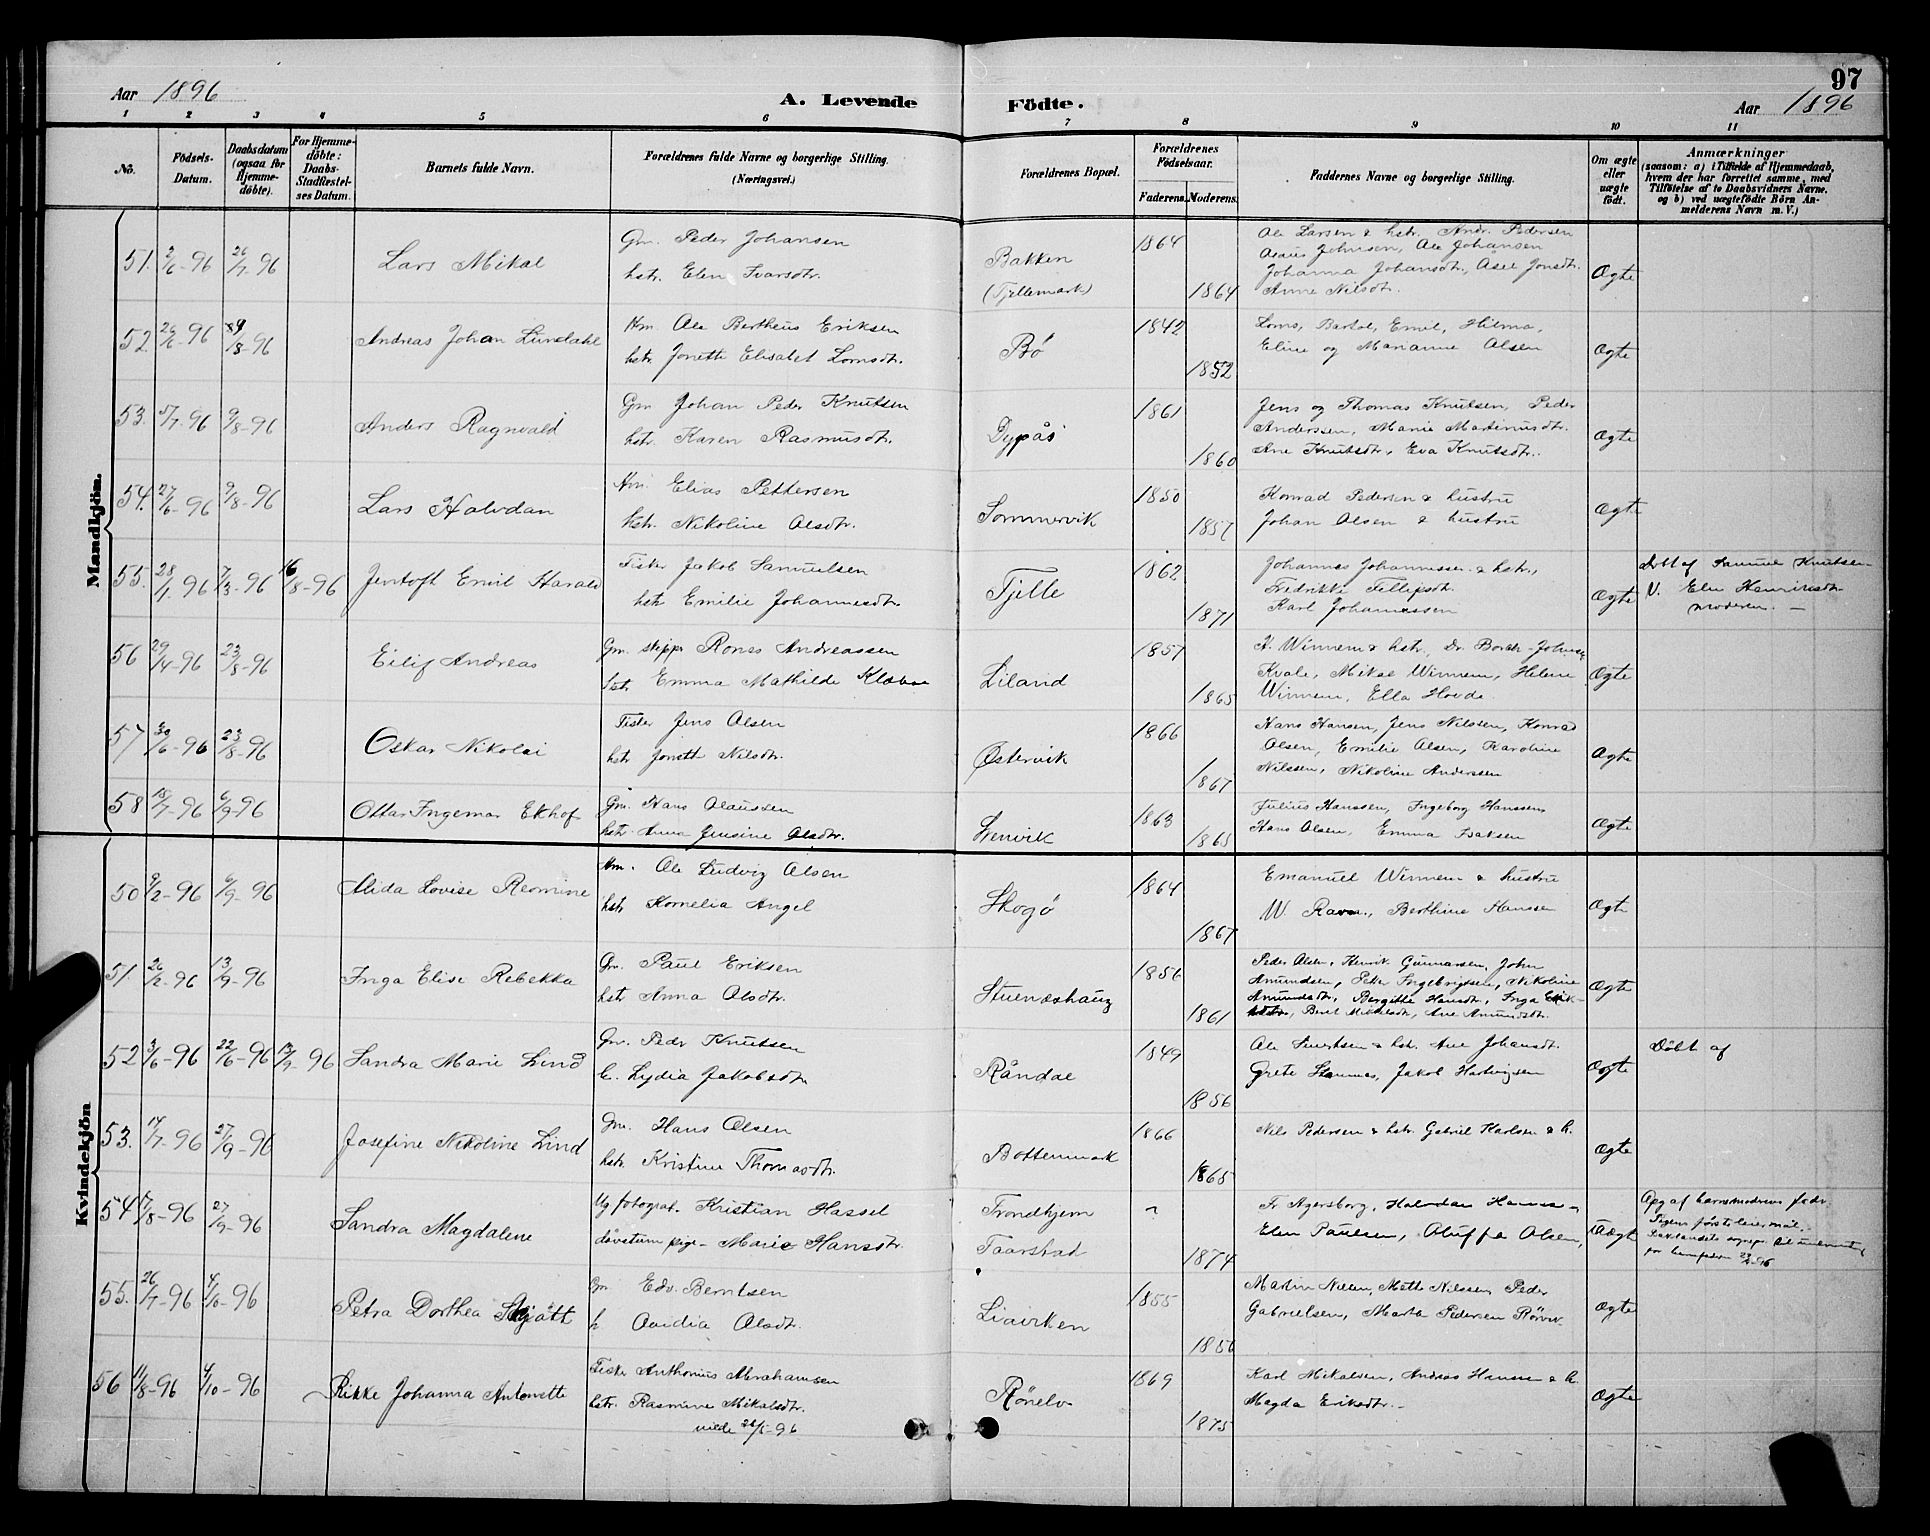 Aar 1896
A. Levende Födte.
97
Aar 1896
1 2 3 4 5 6 7 8 9 10 11
No.
Födsels-Datum.
Daabsdatum (ogsaa for Hjemme-döbte).
For Hjemme-döbte: Daabs-Stadfæstel-ses Datum.
Barnets fulde Navn.
Forældrenes fulde Navne og borgerlige Stilling. (Næringsvei.)
Forældrenes Bopæl.
Forældrenes Födselsaar.
Faderens. Moderens.
Faddernes Navne og borgerlige Stilling.
Om ægte eller uægte födt.
Anmærkninger
(saasom: a) i Tilfælde af Hjemmedaab,
hvem der har forrettet samme, med
Tilföielse af to Daabsvidners Navne.
og b) ved uægtefödte Börn An-
melderens Navn m. V.)
Mandkjön.
51. 2/6-96 26/7-96 Lars Mikal
Gm. Peder Johansen
hstr. Elen Ivarsdtr.
Bakken
(Tjellemark)
1864
1864
Ole Larsen & hstr. Andr. Pedersen
Johnsen, Ole Johansen
Johanna Johansdtr., Åsel Jonsdtr.
Anne Nilsdtr.
Ægte
52. 26/6-96 9/8-96 Andreas Johan Lunstahl
Hm. Ole Bertheus Eriksen
hstr. Jonette Elisabet Lornsdtr.
Bø
1842
1852
Lorns, Bartol, Emil, Hilma,
Eline og Marianne Olsen
Ægte
53. 5/7-96 9/8-96 Anders Ragnvald
Gm Johan Peder Knutsen
hstr. Karen Rasmusdtr.
Dypås
1861
1860
Jens og Thomas Knutsen, Peder
Anderssen, Marie Martinusdtr.
Ane Knutsdtr, Eva Knutsdtr.
Ægte
54. 27/6-96 9/8-96 Lars Halvdan
Hm. Elias Pettersen
hstr. Nikoline Olsdtr.
Sommervik
1850
1857
Konrad Pedersen & hustru
Johan Olsen & hustru
Ægte
55. 28/1-96 7/3-96 16/8-96 Jentoft Emil Harald
Fisker Jakob Samuelsen
hstr Emilie Johannesdtr.
Tjelle
1862
1871
Johannes Johannessen & hstr,
Fredrikke Fillipsdtr.
Karl Johannessen
Ægte
Döbt af Samuel Knutsen
V. Elen Henriksdtr
moderen. —
56 29/4-96 23/8-96 Eilif Andreas
Gm. skippr Rones Andreassen
hstr Emma Mathilde Klæboe
Liland
1857
1865
H. Winnem & hstr., Dr.
Kvale, Mikal Winnem, Helene
Winnem, Ella Hovde.
Ægte
57 30/6-96 23/8-96 Oskar Nikolai
Fisker Jens Olsen
hstr Jonette Nilsdtr.
Østervik
1866
1867
Hans Hansen, Jens Nilssen, Konrad
Olsen, Emilie Olsen, Karoline
Nilssen, Nikoline Anderssen
Ægte
58 18/7-96 6/9-96 Ottar Ingemar Ekhof
Gm. Hans Olaussen
hstr. Anna Jensine Olsdtr.
Stenvik
1863
1865
Julius Hanssen, Ingeborg Hanssen
Hans Olsen, Emma Isaksen
Ægte
Kvindekjön
50 9/2-96 6/9-96 Alida Lovise Reomine
Hm. Ole Ludvig Olsen
hstr Kornelia Angel
Skogø
1864
1867
Emanuel Winnem & hustru
W. , Berthine Hanssen
Ægte
51. 26/2-96 13/9-96 Inga Elise Rebekka
Gm. Paul Eriksen
hstr Anna Olsdtr.
Stuenæshaug
1856
1861
Peder Olsen, Henrik Gunnarsen, John
Amundsen, Peter Ingebrigtsen, Nikoline
Amundsdtr, Bergitte Hansdtr, Inga Erik-
sdtr, Berit Mikalsdtr, Ane Amundsdtr.
Ægte
52 3/6-96 22/6-96 13/9-96 Sandra Marie Lind
Gm. Pedr Knutsen
h. Lydia Jakobsdtr
Råndal
1849
1856
Ole Sivertsen & hstr. Ane Johansdtr.
Grete , Jakob Hartvigsen
Ægte
Döbt af
53. 14/7-96 27/9-96 Josefine Nikoline Lind
Gm. Hans Olsen
hstr. Kristine Thomasdtr.
Bottenmark
1866
1865
Nils Pedersen & hstr. Gabriel Karlsen & h.
Ægte
54 17/8-96 27/9-96 Sandra Magdalene
Ug. fotograf. Kristian Hassel
pige- Marie Hansdtr.
Trondhjem
Taarstad
1874
Fr Agersborg, Halvdan
Elen Paulsen, Oluffa Olsen,
Uægte
Opg af barnemodrens fadr.
Pigens første leiermål.
55. 26/7-96 4/10-96 Petra Dorthea Skjått
Gm Edv. Berntsen
h Ovidia Olsdtr.
Liaviken
1855
1856
Martin Nilsen, Mette Nilssen, Peder
Gabrielsen, Marta Pedersen Rørvik
Ægte
56 11/8-96 4/10-96 Rikke Johanna Antonette
Fisker Anthonius Abrahamsen
hstr. Rasmine Mikalsdtr.
viede 26/5-96
Rønelv
1869
1875
Karl Mikalsen, Andreas Hanssen & h.
Magda Eriksdtr.-
Ægte